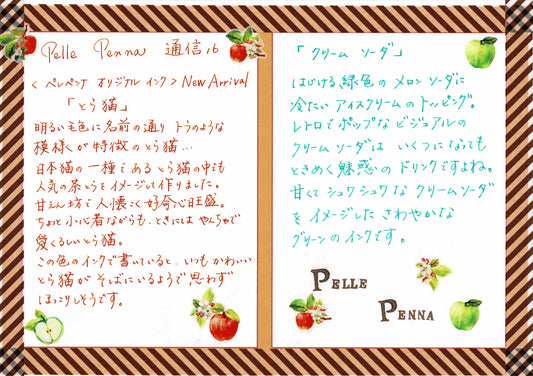 Pelle Penna 通信16
<ペレペンナ オリジナルインク> New Arrival
「とら猫」
明るい毛色に名前の通り トラのような
模様が特徴のとら猫…
日本猫の一種であるとら猫の中でも
人気の茶とらをイメージして作りました。
甘えん坊で人懐こく好奇心旺盛。
ちょっと小心者ながらも、ときには やんちゃで
愛くるしいとら猫。
この色のインクで書いていると、いつもかわいい
とら猫がそばにいるようで思わず
ほっこりしそうです。
「クリームソーダ」
はじける緑色のメロンソーダに
冷たいアイスクリームのトッピング。
レトロでポップなビジュアルの
クリームソーダは いくつになっても
ときめく魅惑のドリンクですよね。
甘くてシュワシュワな クリームソーダ
をイメージした さわやかな
グリーンのインクです。
PELLE
PENNA